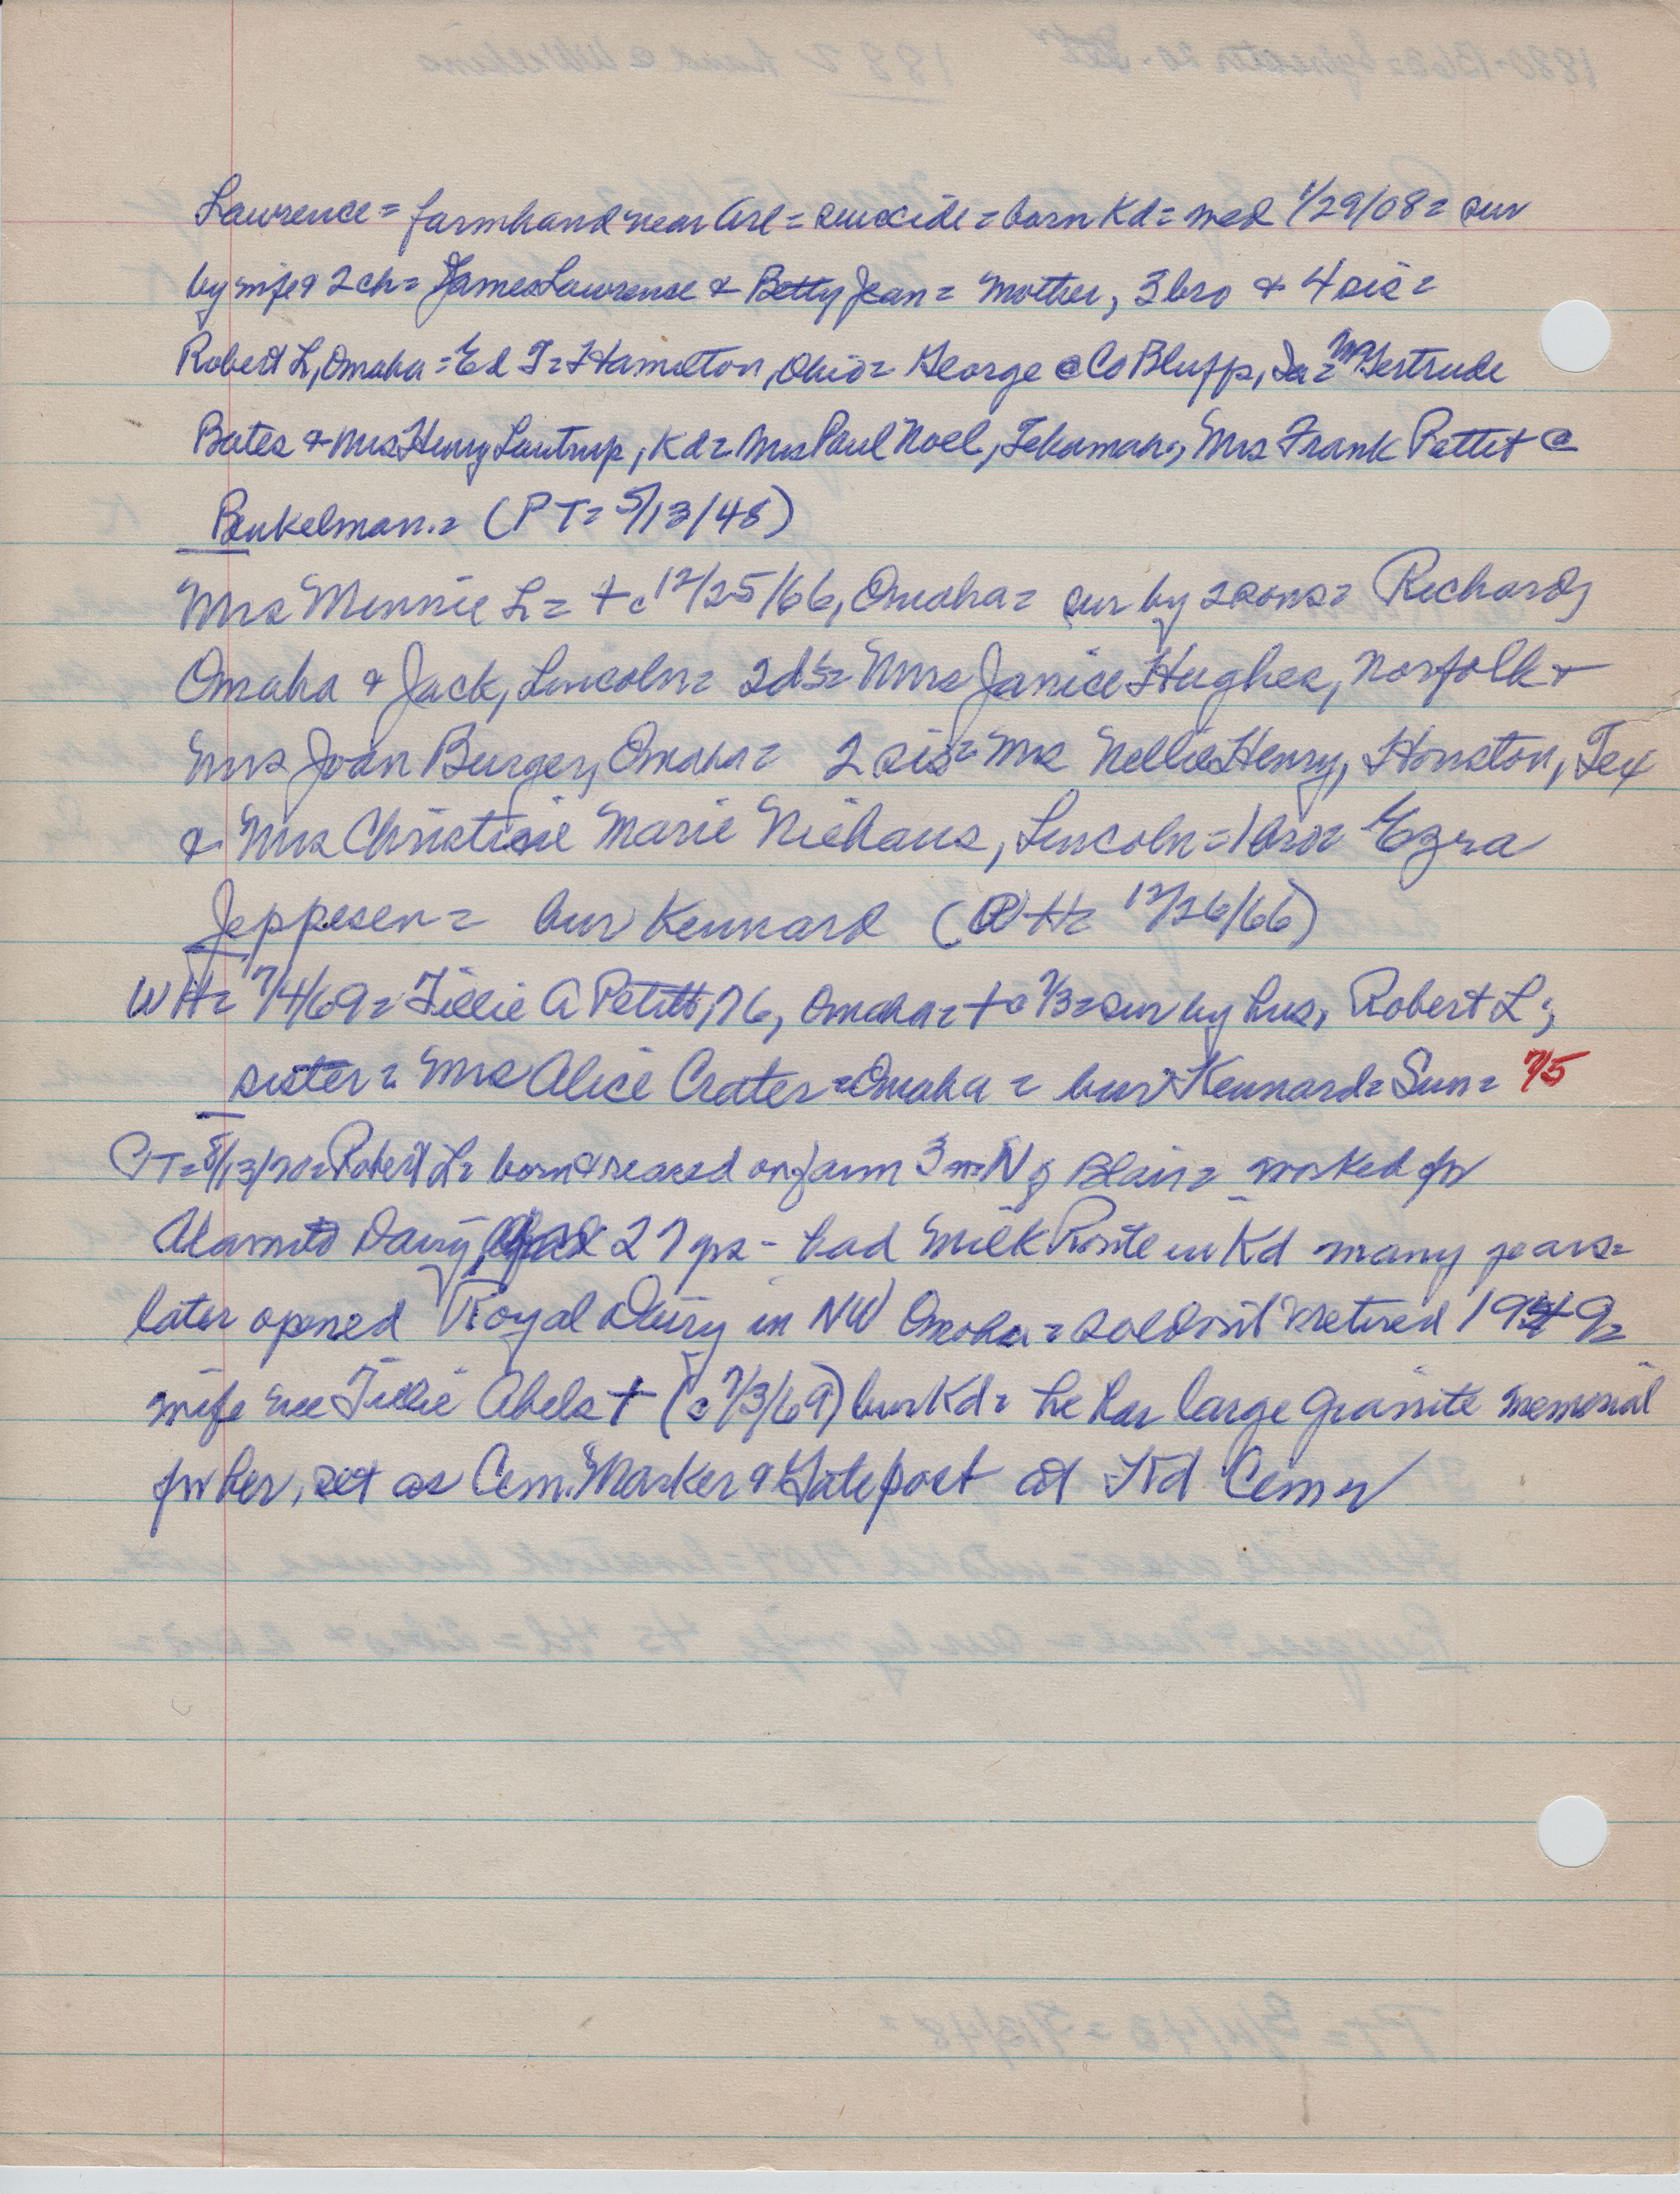 Lawrence = farmhand near Arl = suicide = born Kd = wed 1/29/08 = sur
by wife & 2 ch = James Lawrence & Betty Jean = Mother, 3 bro & 4 sis =
Robert L, Omaha = Ed T = Hamilton, Ohio = George @ Co Bluffs, Ia = Mrs Gertrude
Bates & Mrs Henry Lautrup, Kd = Mrs Paul Noel, Tekamah, Mrs Frank Pettit @
Benkelman. = (PT = 5/13/48)
Mrs Minnie L = + @ 12/25/66, Omaha = sur by 2 sons = Richard,
Omaha & Jack, Lincoln = 2 d's = Mrs Janice Hughes, Norfolk &
Mrs Joan Burger, Omaha = 2 sis = Mrs Nellie Henry, Houston, Tex
& Mrs Christine Marie Niehaus, Lincoln = 1 bro = Ezra
Jeppesen = bur Kennard (WH = 12/26/66)
WH = 7/4/69 = Tillie A Petitt, 76, Omaha = + @ 7/3 = sur by hus, Robert L;
sister = Mrs Alice Crater = Omaha = bur Kennard = Sun = 7/5
PT = 8/13/70 = Robert L = born & reared on farm 3 m N of Blair = worked for
Alamito Dairy 27 yrs - had Milk Route in Kd many years =
later opened Royal Dairy in NW Omaha = sold it & retired 1949 =
wife nee Tillie Abels + (@ 7/3/69) bur Kd = he has large granite memorial
for her, set as Cem. Marker & Gatepost at Kd Cem